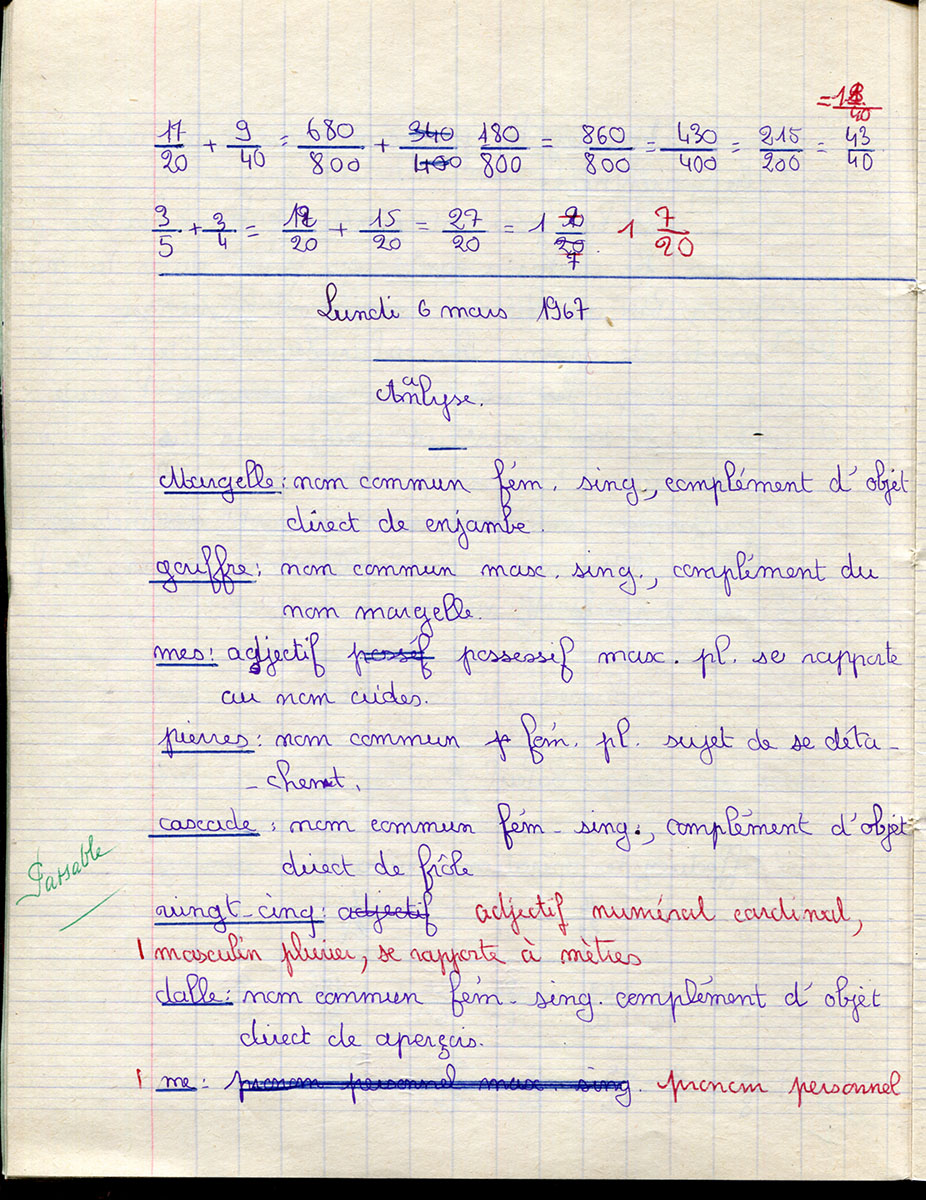 = 1 3/40
17/20 + 9/40 = 680/800 + 340/400 180/800 = 860/800 = 430/400 = 215/200 = 43/40
3/5 + 3/4 = 12/20 + 15/20 = 27/20 = 1 7/20 1 7/20
Lundi 6 mars 1967
Analyse.
Margelle : nom commun fém. sing., complément d'objet
direct de enjambe.
gouffre : nom commun masc. sing., complément du
nom margelle.
mes : adjectif posséf possessif masc. pl. se rapporte
au nom aides.
pierres : nom commun fém. pl. sujet de se déta-
-chent.
cascade : nom commun fém. sing., complément d'objet
direct de frôle
Passable
vingt-cinq : adjectif adjectif numéral cardinal,
masculin pluriel, se rapporte à mètres
dalle : nom commun fém. sing. complément d'objet
direct de aperçois.
me : pronom personnel masc. sing. pronom personnel